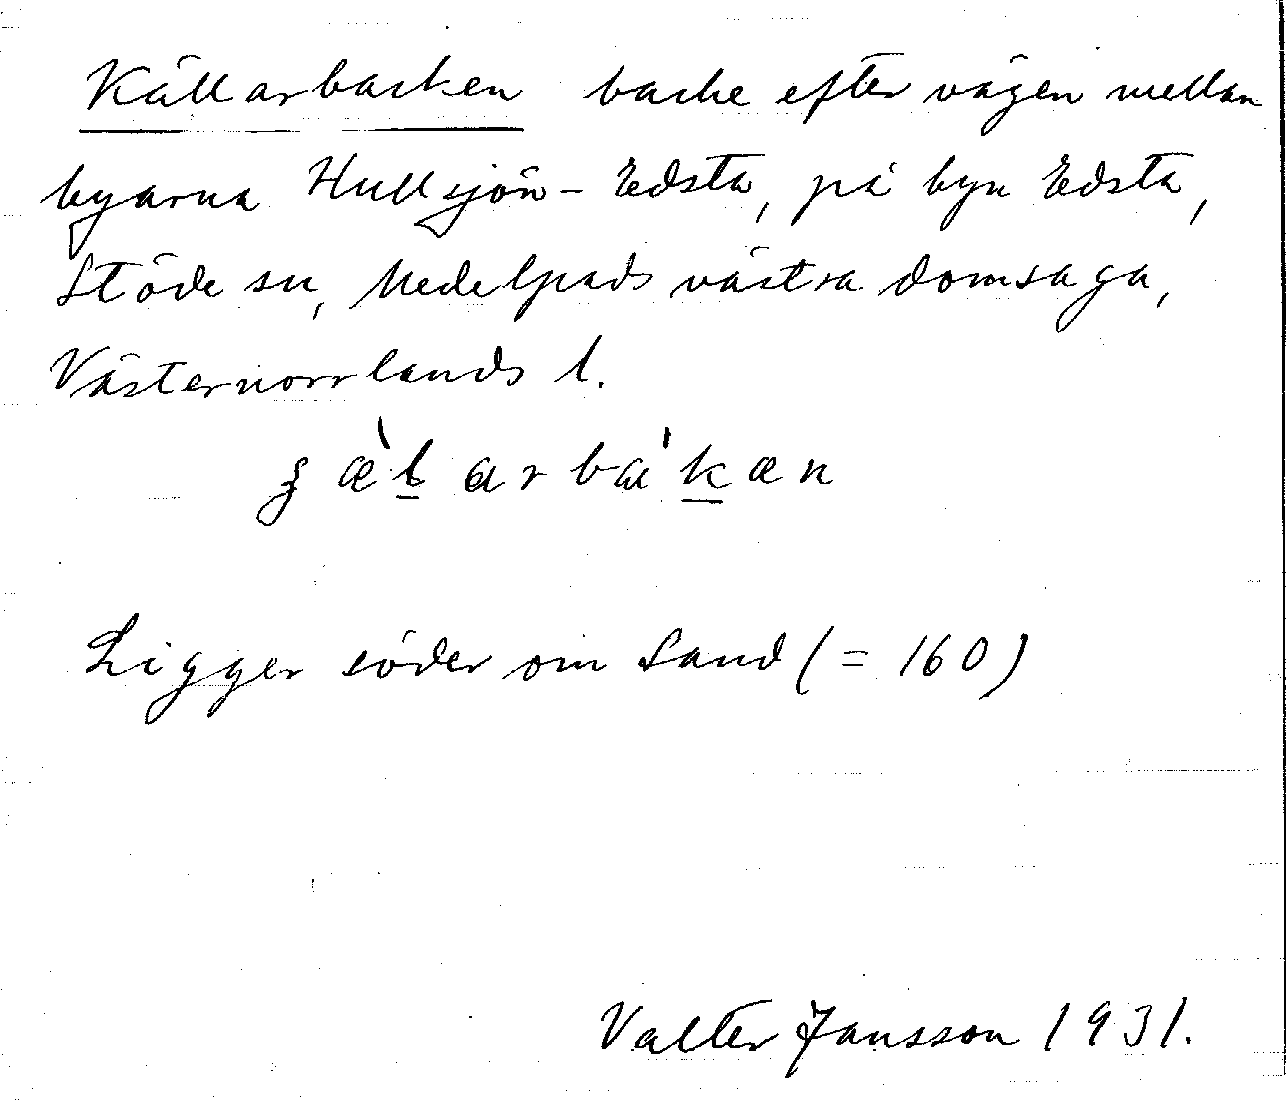 Källarbacken backe efter vägen mellan
byarna Hullsjön - Edsta, på byn Edsta,
Stöde sn, Medelpads västra domsaga,
Västernorrlands l.
ʒæ̀l̲arba̍k̲æn
Ligger söder om Sand (= 160)
Valter Jansson 1931.